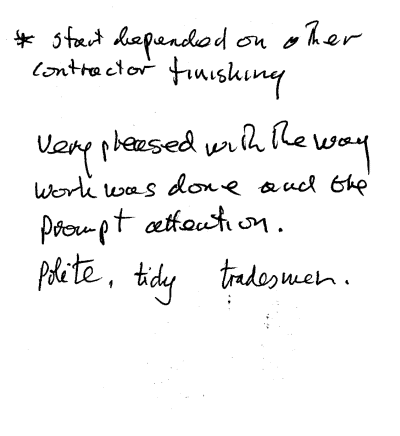 * start depended on other
contractor finishing
Very pleased with the way
work was done and the
prompt attention.
Polite, tidy tradesmen.